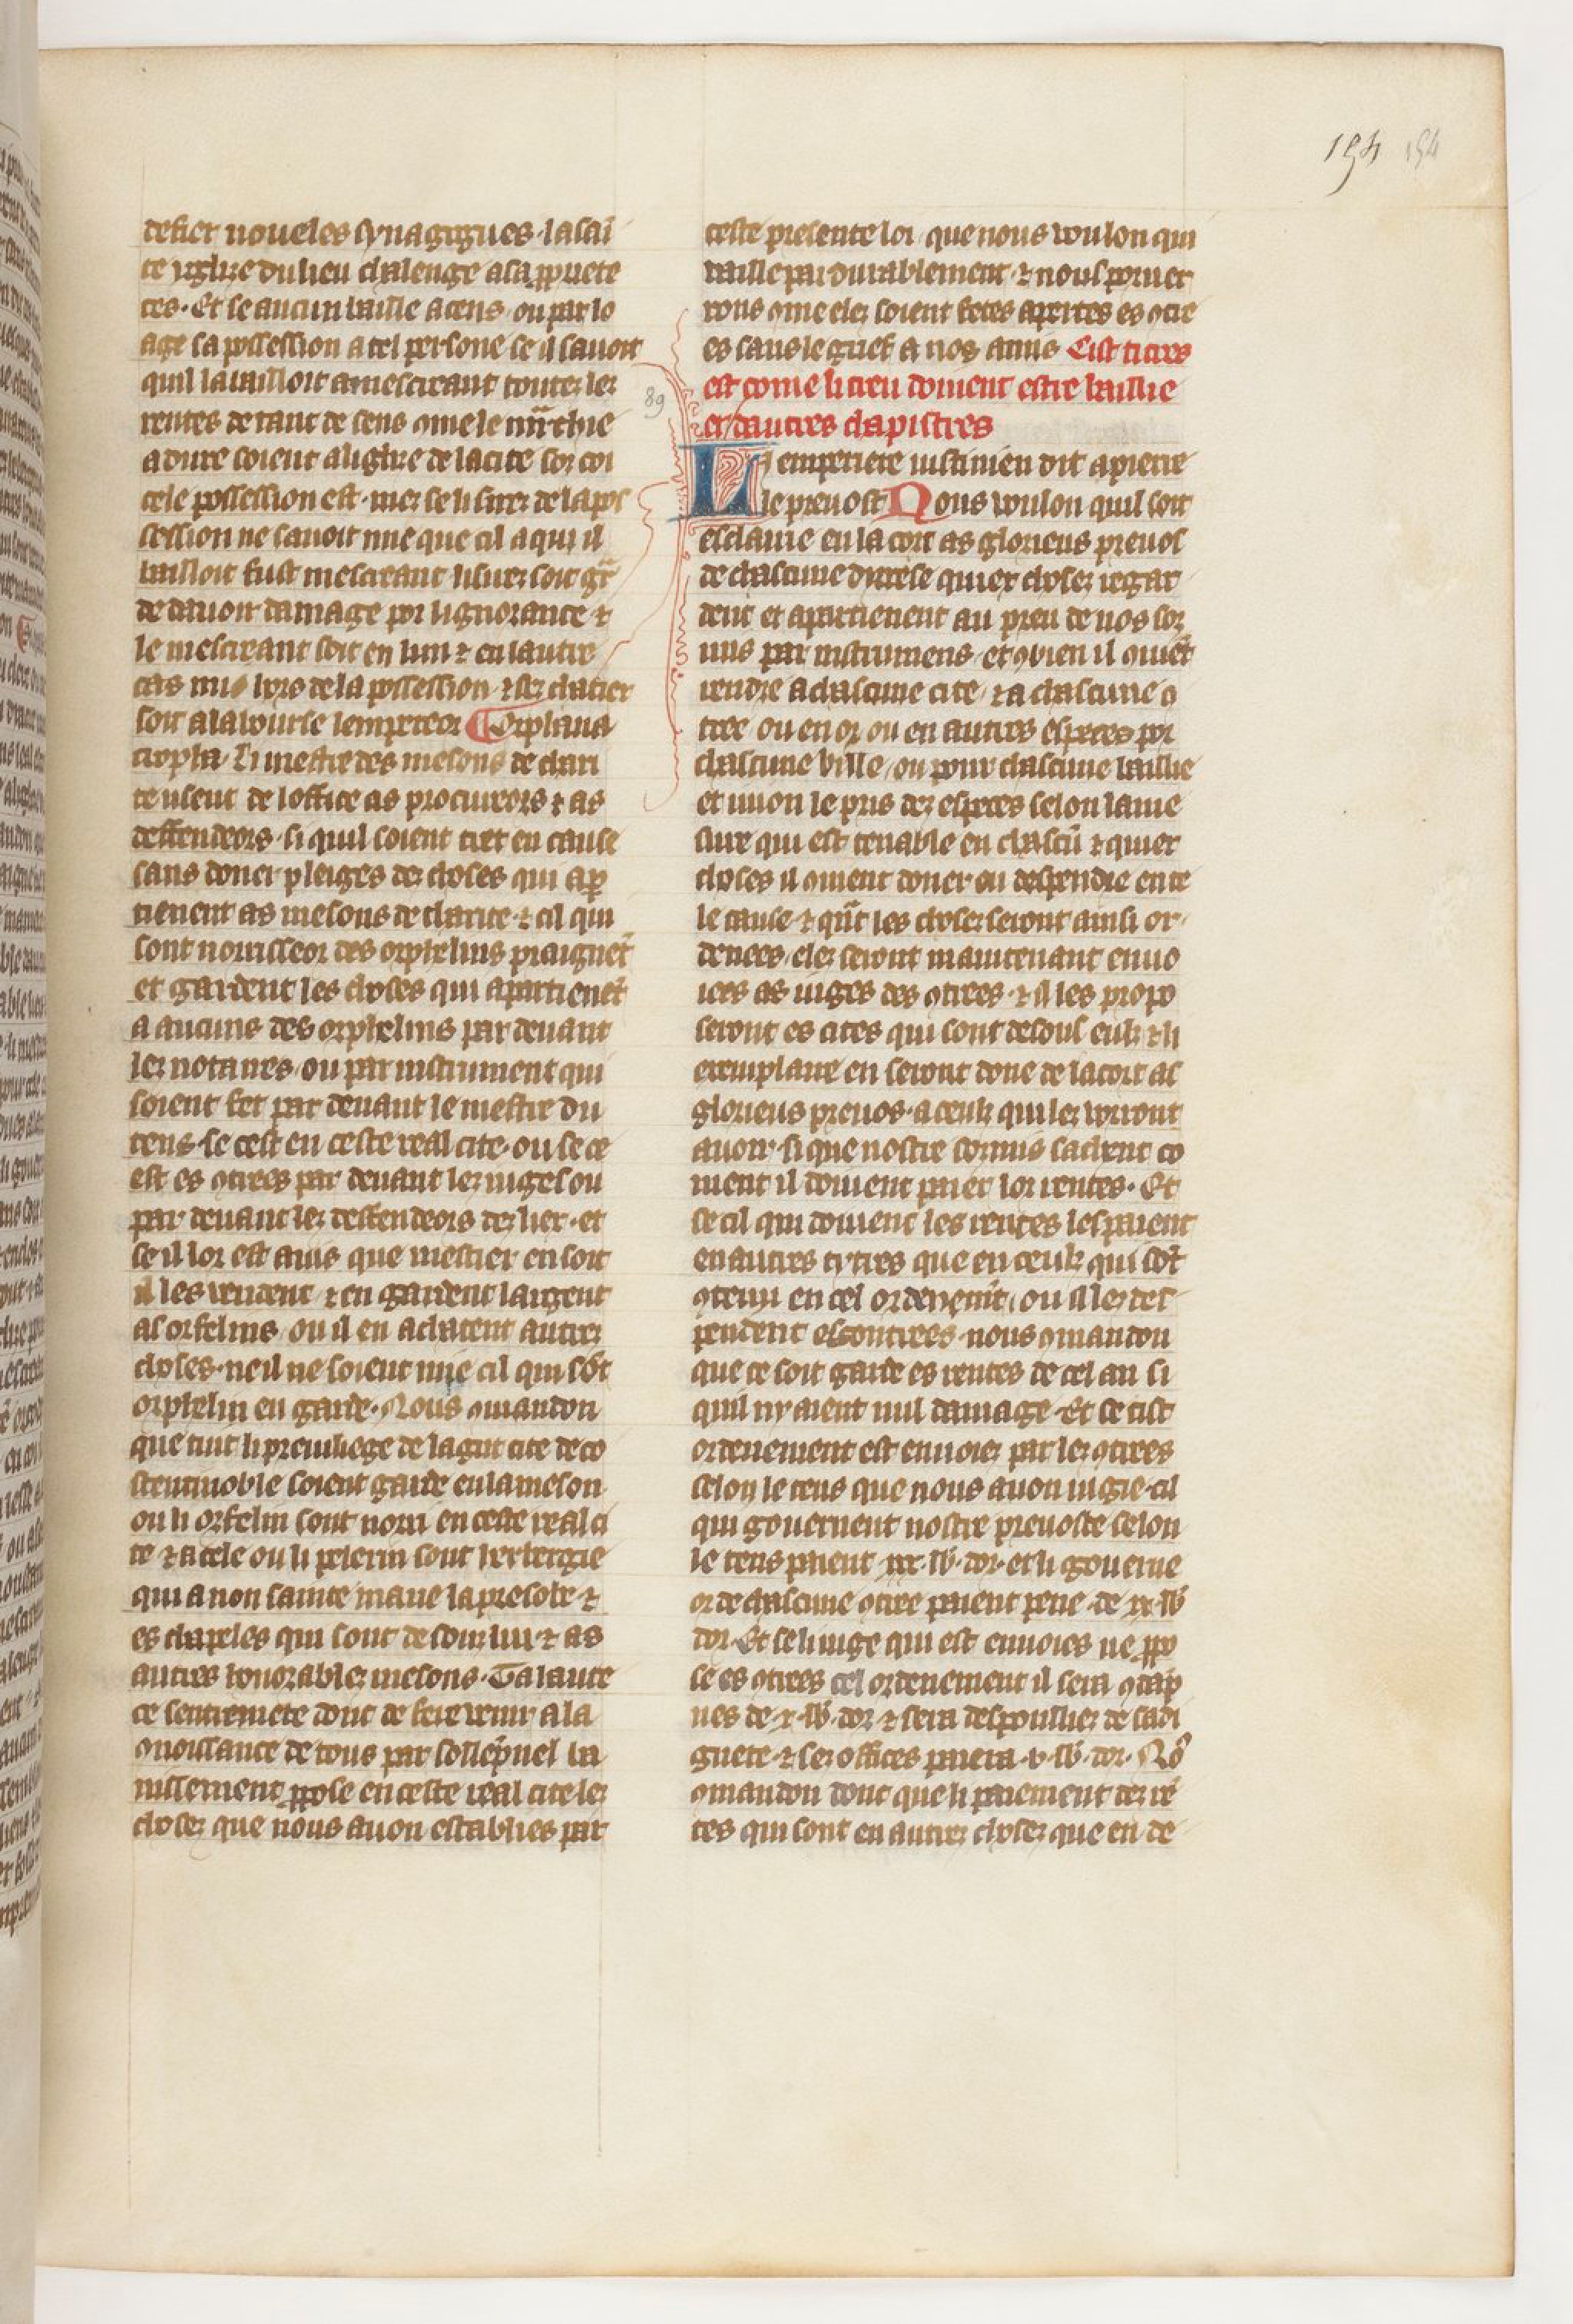 154 154
defier noueles synagogues · la sai
te yglyse du lieu chalenge a sa ꝓpriete
tes · Et se aucun baille a cens ou par lo
age sa possession a tel persone se il sauoit
quil la bailloit a mescreant toutez lez
rentes de tant de tens
a dure soient a liglyse de la cite soz coi
cele possession est · mez se li sirez de la pos
session ne sauoit mie que cil a qui il
bailloit fust mescreant li sirez soit gar
de dauoir damage por lignorance ⁊
le mescreant soit en lun ⁊ en lautre
cas mis hors de la possession ⁊ sez chatier
soit a la bourse lempereor Orphana
tropha · Li mestre des mesons de chari
te usent de loffice as procureors ⁊ as
deffendeors · si quil soient tret en cause
sans doner pleiges dez choses qui ap
tienent as mesons de charite · ⁊ cil qui
sont norrisseor des orphelins praignēt
et gardent les choses qui apartienēt
a aucuns des orphelins par deuant
lez notaires · ou par instrument qui
soient fet par deuant le mestre du
cens · se cest en ceste real cite · ou se ce
est es ꝯtrees par deuant lez iuges ou
par deuant lez deffendeors dez liez · et
se il lor est auis que mestier en soit
il les vendent · ⁊ en gardent largent
as orfelins ou il en achatent autrez
choses · ne il ne soient mie cil qui sōt
orphelin en garde · Nous ꝯmandon
que tuit li preuilliege de la grāt cite de co
stentinoble soient garde en la meson
ou li orfelin sont norri en ceste real ci
te ⁊ a cele ou li pelerin sont herbergie
qui a non sainte marie
es chapeles qui sont desouz lui ⁊ as
autres honorablez mesons · Ta hautes
ce sentremete donc de fere venir a la
ꝯnoissance de tous par sollepnel ba
nissement ꝓpose en ceste real cite lez
chosez que nous auon establies par
ceste presente loi que nous voulon qui
vaille pardurablement · ⁊ nous poruer
rons ꝯme elez soient fetes apertes es ꝯtre
es sans le grief a nos amis Cist titres
est come li treu doiuent estre baillie
et dautres chapistres
89
L emperiere iustinien dit a pierre
le preuost Nous voulon quil soit
esclairie en la cort as glorieus preuos
de chascune dyocese quiex chosez regar
dent et apartienent au preu de nos sor
mis par instrumens · et ꝯbien il ꝯuiēt
rendre a chascune cite · ⁊ a chascune ꝯ
tree ou en or ou en autres especes por
chascune ville · ou pour chascune baillie
et mon le pris dez especes selon la me
sure qui est tenable en chascū ⁊ quiex
choses il ꝯuient doner ou despendre en te
le cause · ⁊ quāt les chosez seront ainsi or
denees · elez seront maintenant enuo
iees as iuges des ꝯtrees · ⁊ il les propo
seront es cites qui sont desous eulz ⁊ li
exemplaire en seront done de la cort as
glorieus preuos · a ceulz qui lez vorront
auoir · si que nostre sormis sachent co
ment il doiuent paier lor rentes · Et
se cil qui doiuent les rentes les paient
en autres tytres que en ceulz qui sōt
ꝯtenu en cel ordenemēt · ou il lez des
pendent es ꝯtrees · nous ꝯmandon
que ce soit garde es rentes de cel an si
quil ny aient nul damage · Et se cist
ordenement est enuoiez par lez ꝯtrees
selon le tens que nous auon iugie · cil
qui gouernent nostre preuoste selon
le tens paient xxx · lb · dor · et li gouerne
or de chascune ꝯtree paient peine de xx · lb
dor · Et se li iuge qui est enuoies ne ꝓpo
se es ꝯtrees cel ordenement il sera ꝯdāp
nes de x · lb · dor · ⁊ sera despoulliez de sa di
gnete · ⁊ sez offices paiera · v · lb · dor · Nō
ꝯmandon dont que li paiement dez rē
tes qui sont en autrez chosez que en de